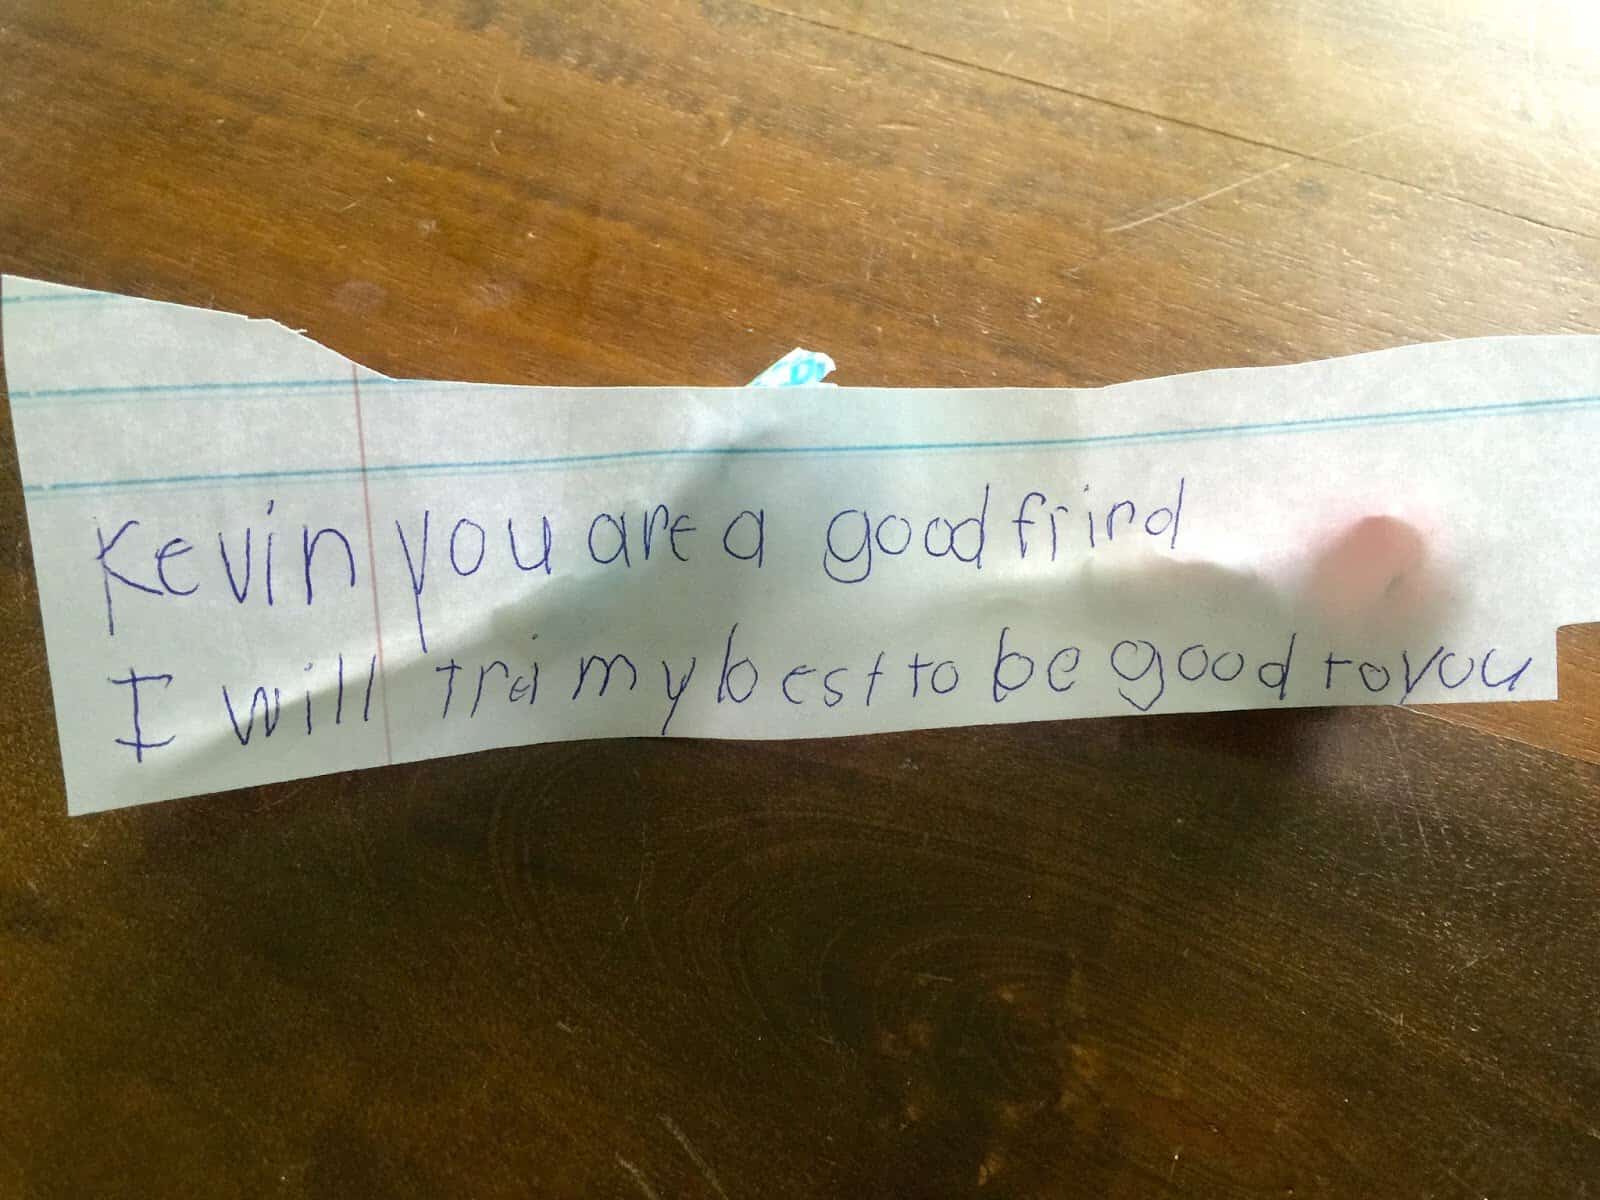 Kevin you are a good frind
I will tri my best to be good to you